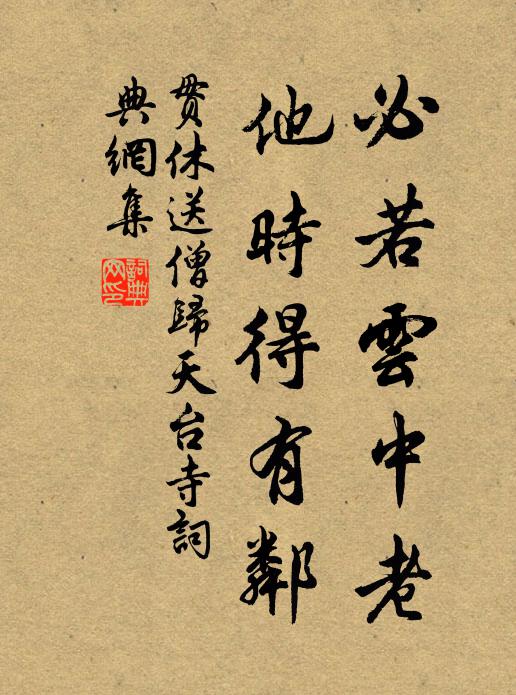 必若雲中老
他時得有鄰
貫休送僧歸天台寺詞
典網集
詞典
网印